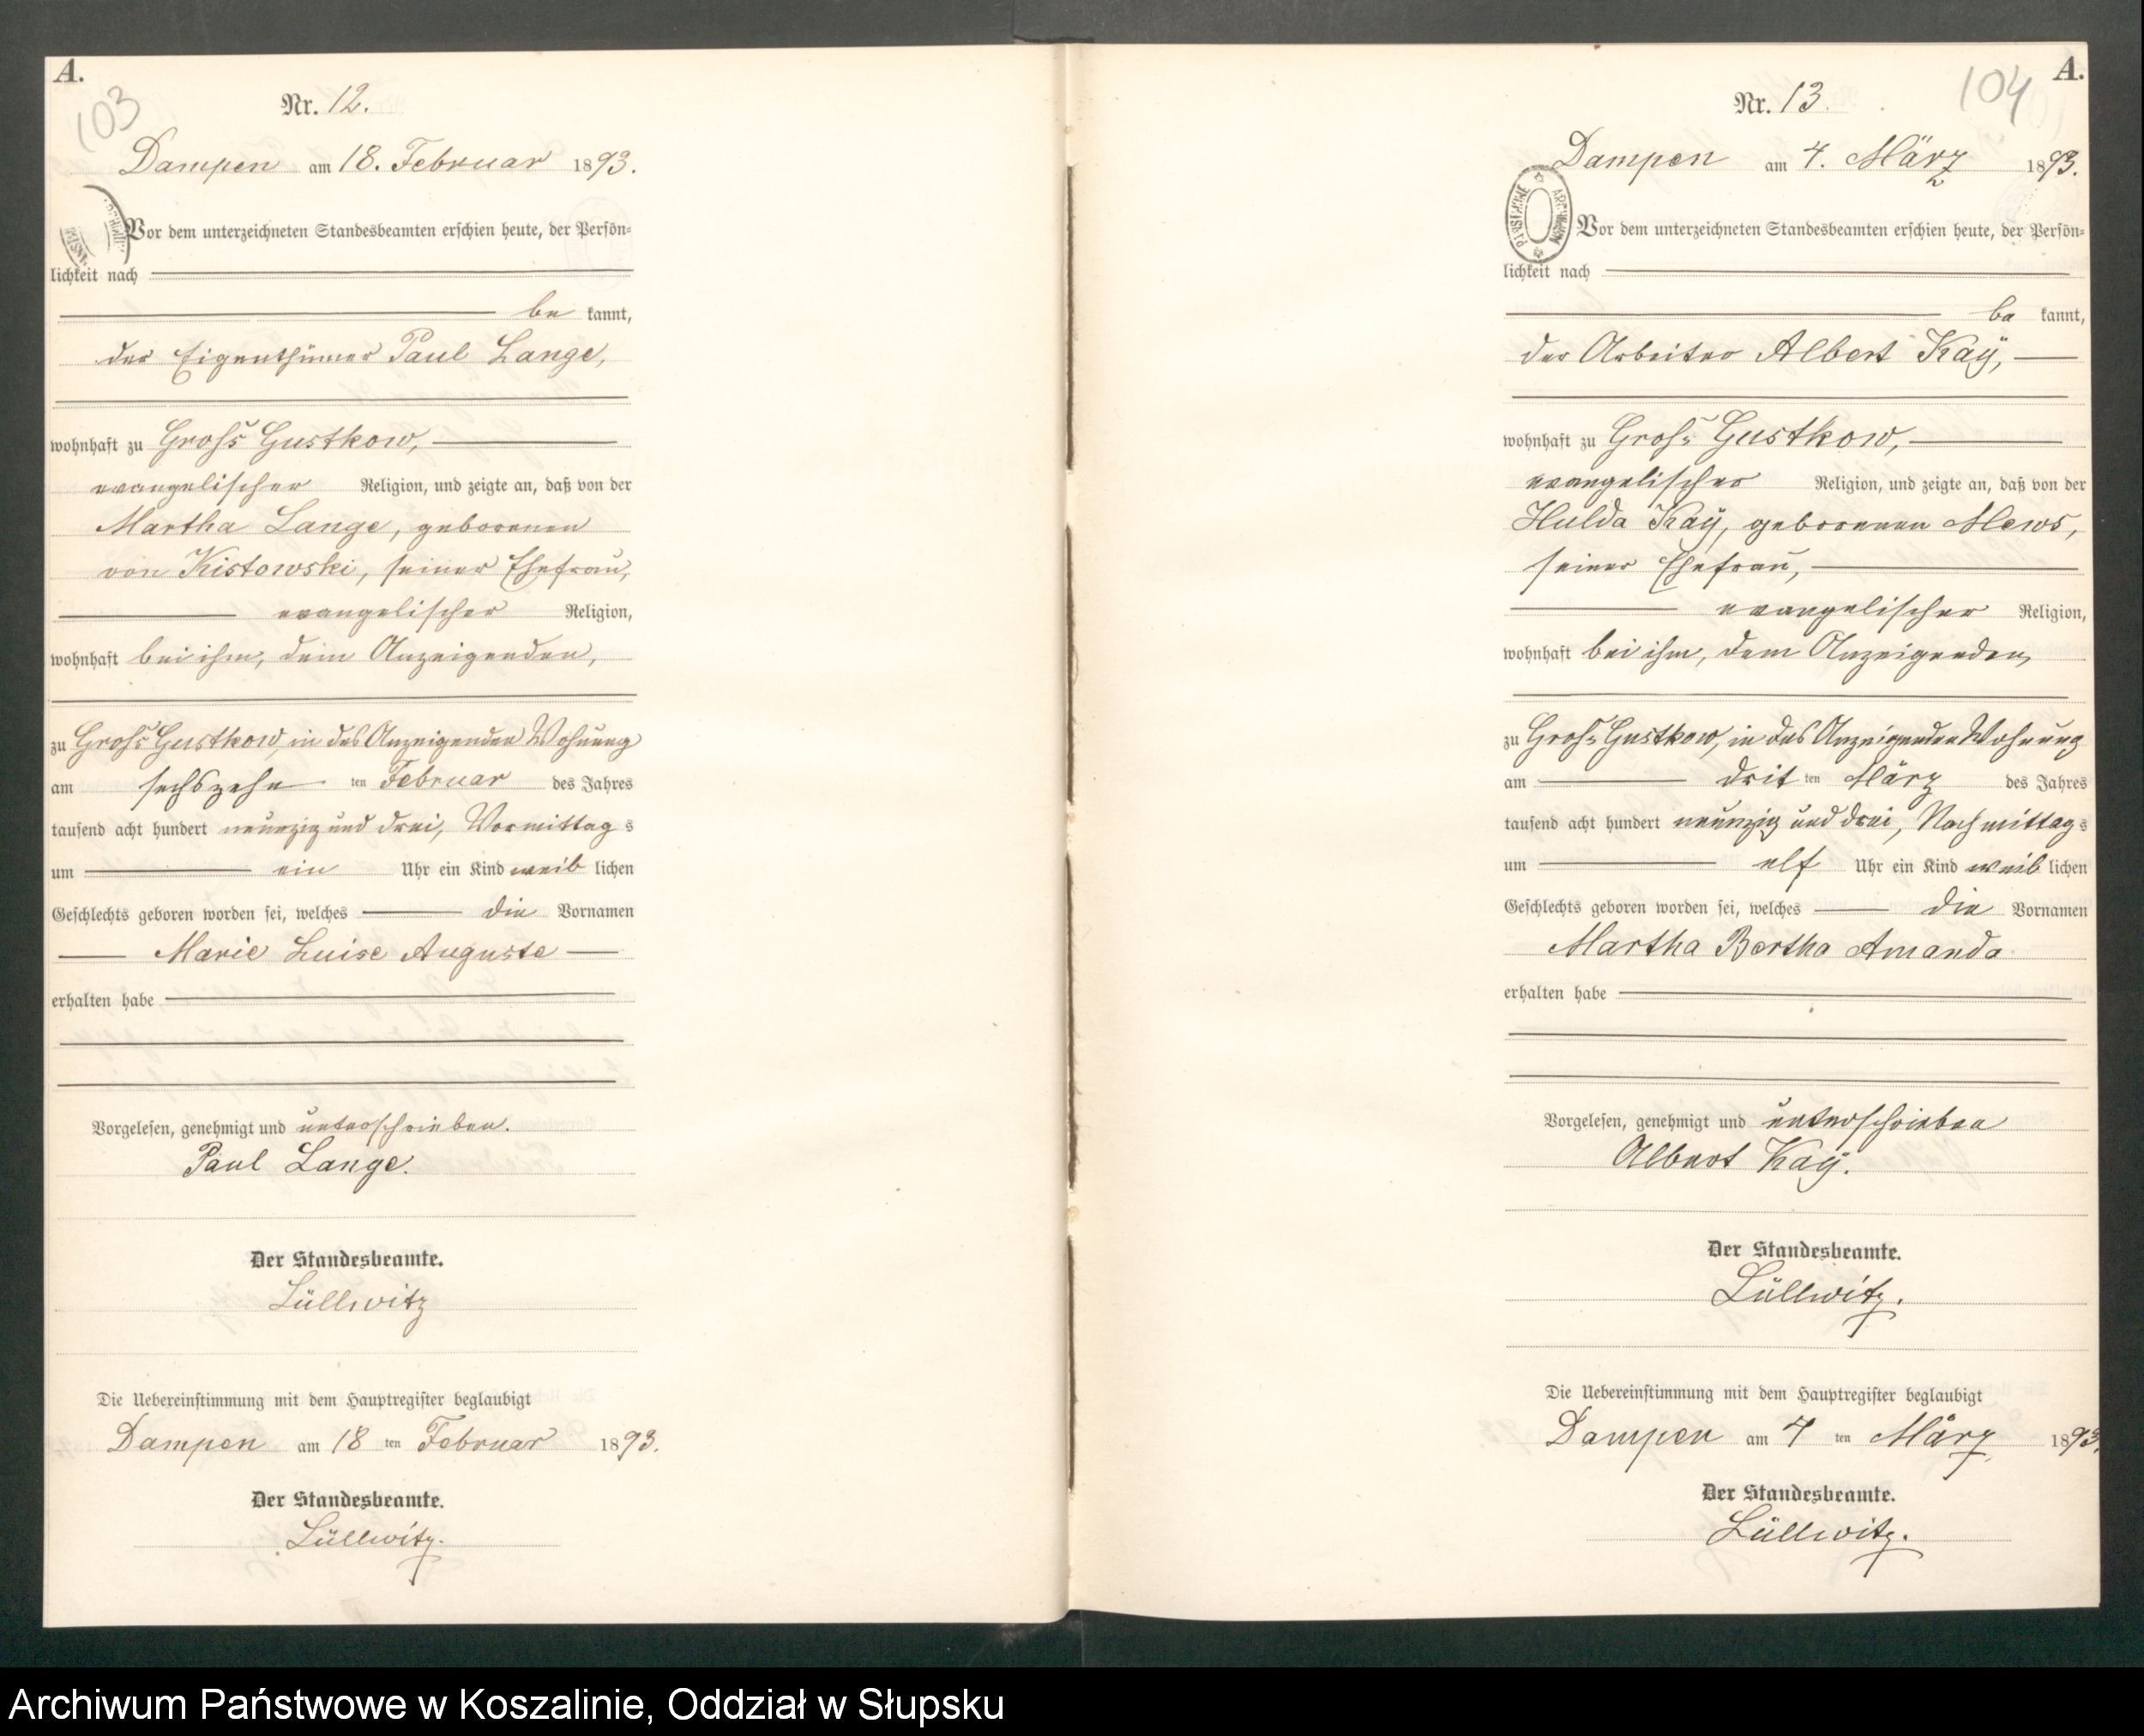 A.
103
Nr. 12.
Dampen am 18. Februar 1893.
Vor dem unterzeichneten Standesbeamten erschien heute, der Persön-
lichkeit nach
be kannt,
der Eigenthümer Paul Lange,
wohnhaft zu Groß Gustkow,
evangelischer Religion, und zeigte an, daß von der
Martha Lange, geborenen
von Kistowski, seiner Ehefrau,
evangelischer Religion,
wohnhaft bei ihm, dem Anzeigenden,
zu Groß Gustkow, in des Anzeigenden Wohnung
am sechszehn ten Februar des Jahres
tausend acht hundert neunzig und drei, Vormittag s
um ein Uhr ein Kind weib lichen
Geschlechts geboren worden sei, welches die Vornamen
Marie Luise Auguste
erhalten habe
Vorgelesen, genehmigt und unterschrieben.
Paul Lange.
Der Standesbeamte.
Lüllwitz
Die Uebereinstimmung mit dem Hauptregister beglaubigt
Dampen am 18 ten Februar 1893.
Der Standesbeamte.
Lüllwitz.
A.
104
Nr. 13.
Dampen am 7. März 1893.
Vor dem unterzeichneten Standesbeamten erschien heute, der Persön-
lichkeit nach
be kannt,
der Arbeiter Albert Kaÿ,
wohnhaft zu Groß Gustkow,
evangelischer Religion, und zeigte an, daß von der
Hulda Kaÿ, geborenen Mews,
seiner Ehefrau,
evangelischer Religion,
wohnhaft bei ihm, dem Anzeigenden,
zu Groß Gustkow, in des Anzeigenden Wohnung
am drit ten März des Jahres
tausend acht hundert neunzig und drei, Nachmittag s
um elf Uhr ein Kind weib lichen
Geschlechts geboren worden sei, welches die Vornamen
Martha Bertha Amanda
erhalten habe
Vorgelesen, genehmigt und unterschrieben
Albert Kaÿ.
Der Standesbeamte.
Lüllwitz.
Die Uebereinstimmung mit dem Hauptregister beglaubigt
Dampen am 7 ten März 1893.
Der Standesbeamte.
Lüllwitz.
Archiwum Państwowe w Koszalinie, Oddział w Słupsku